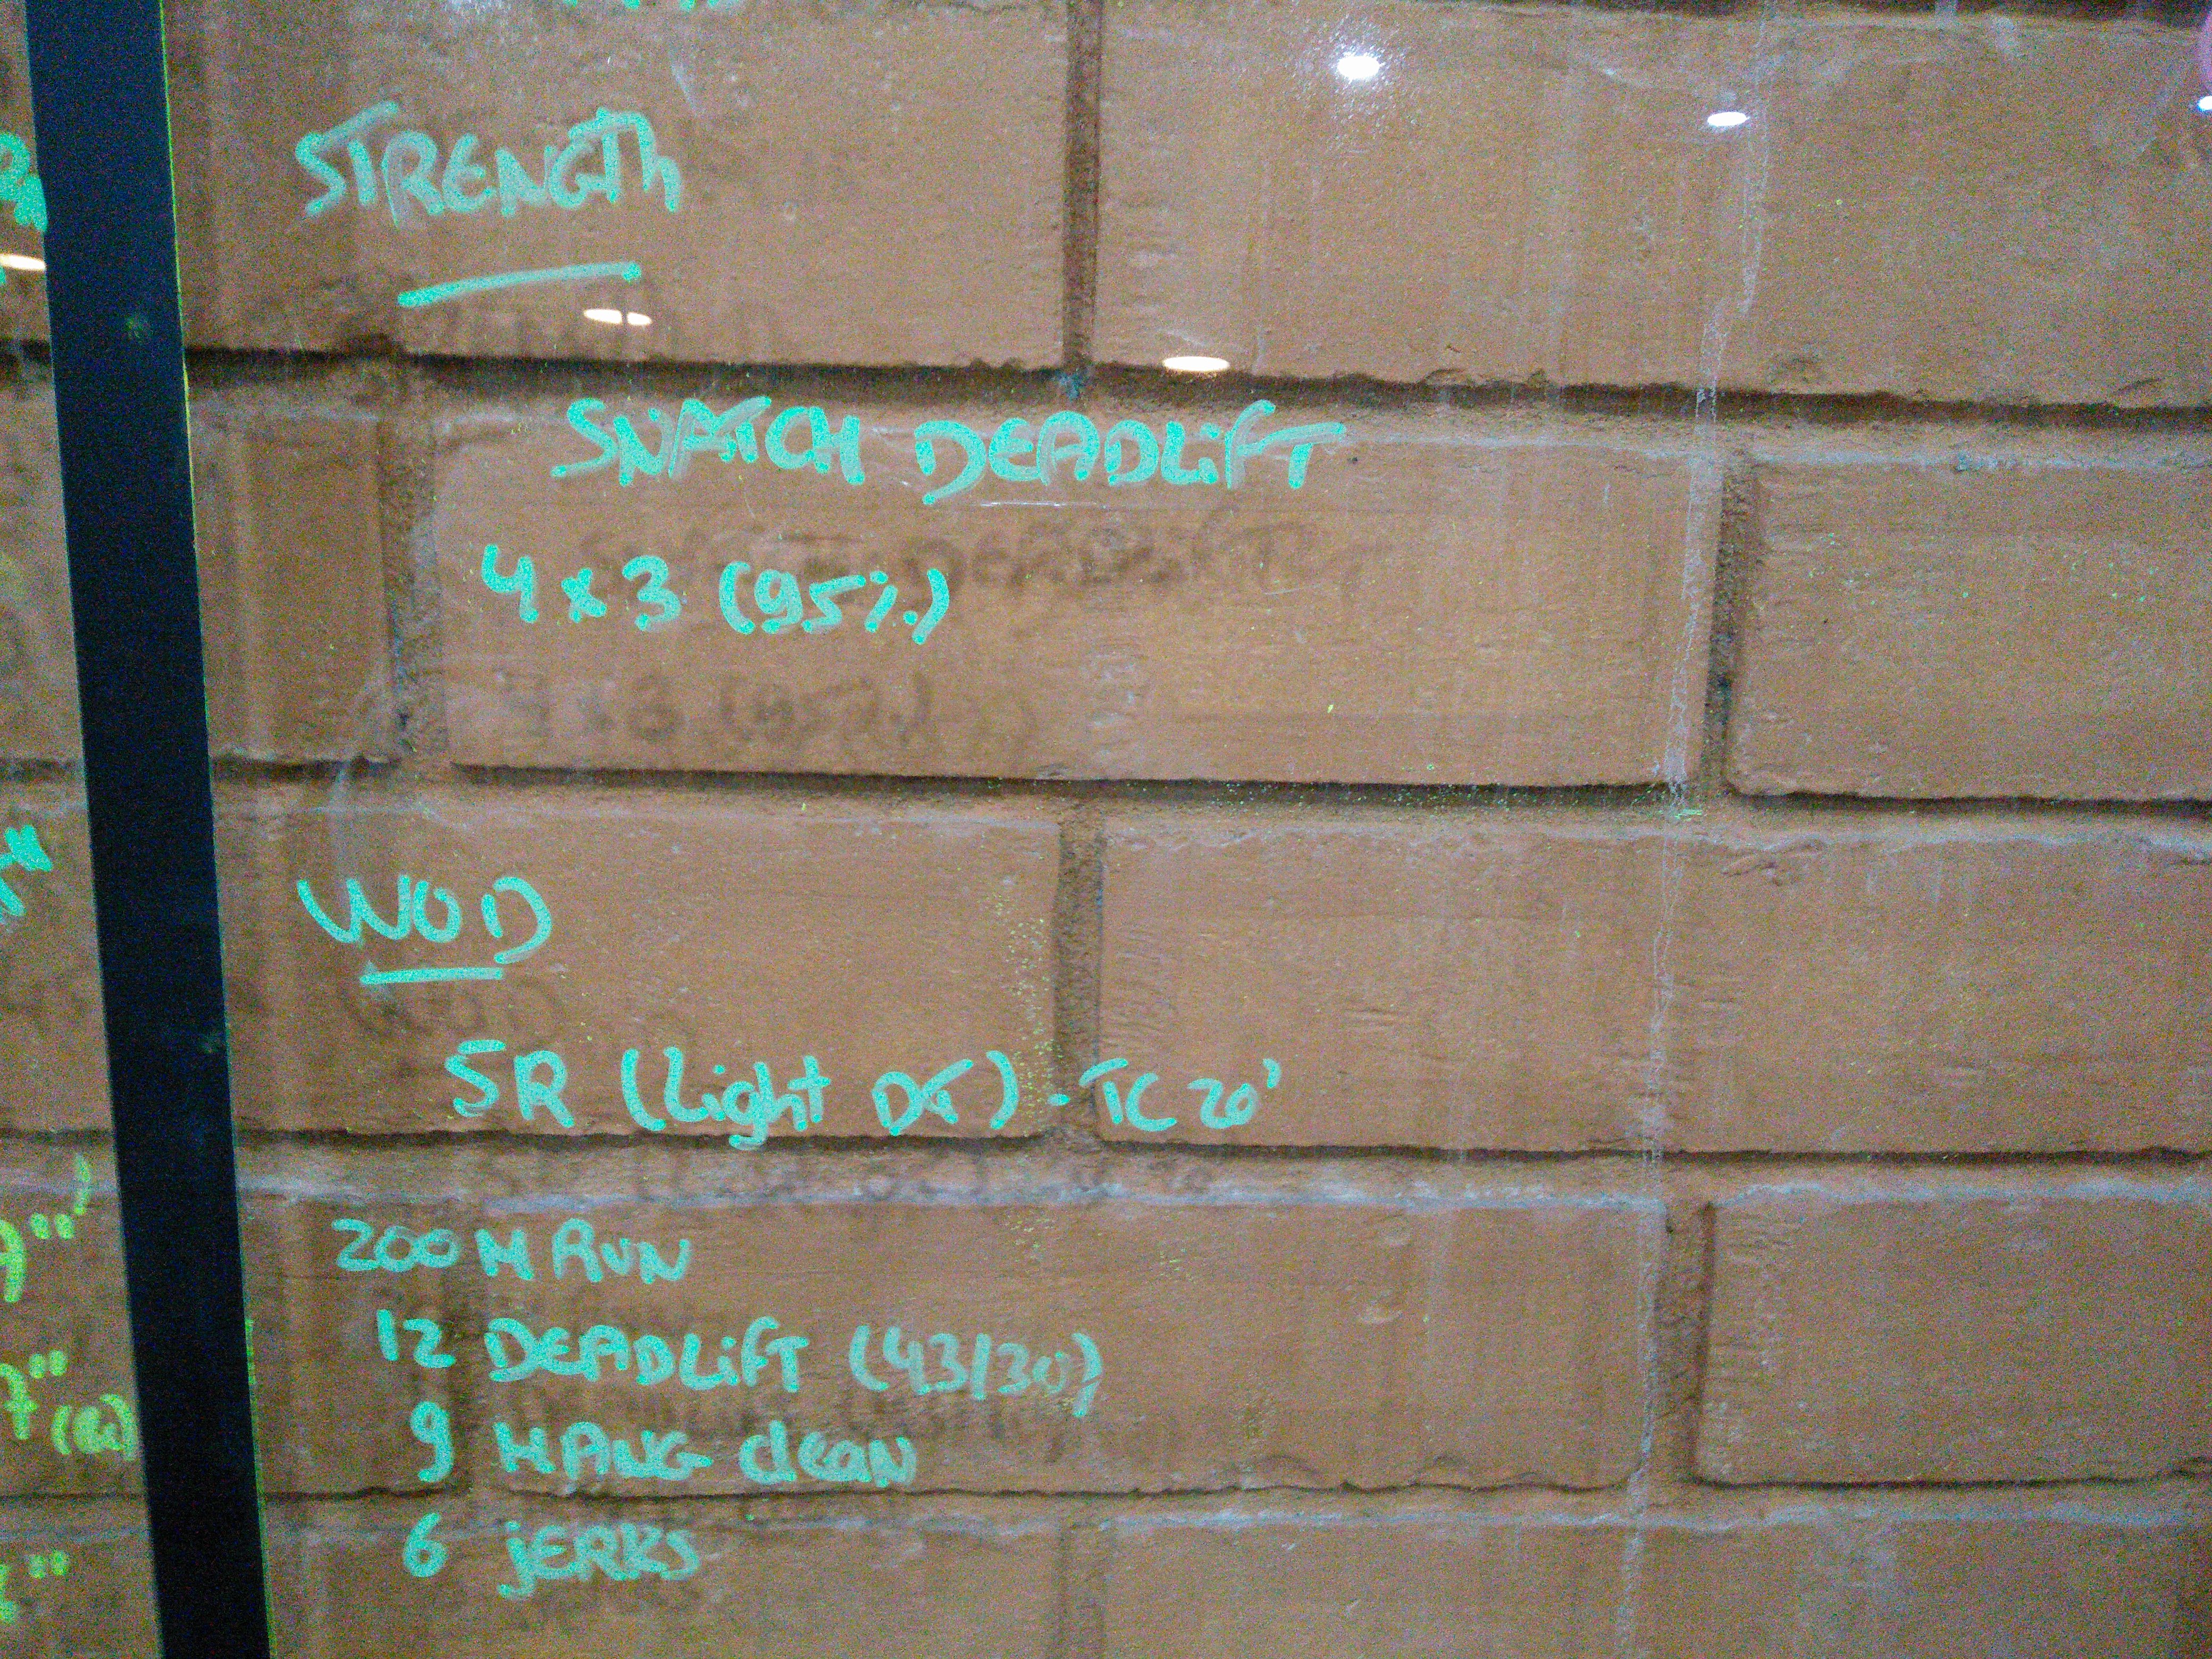 STRENGTH
SNATCH DEADLIFT
4 x 3 (95%)
WOD
5R (Light DT) - TC 20'
200 M RUN
12 DEADLIFT (43/30)
9 HANG clean
6 JERKS